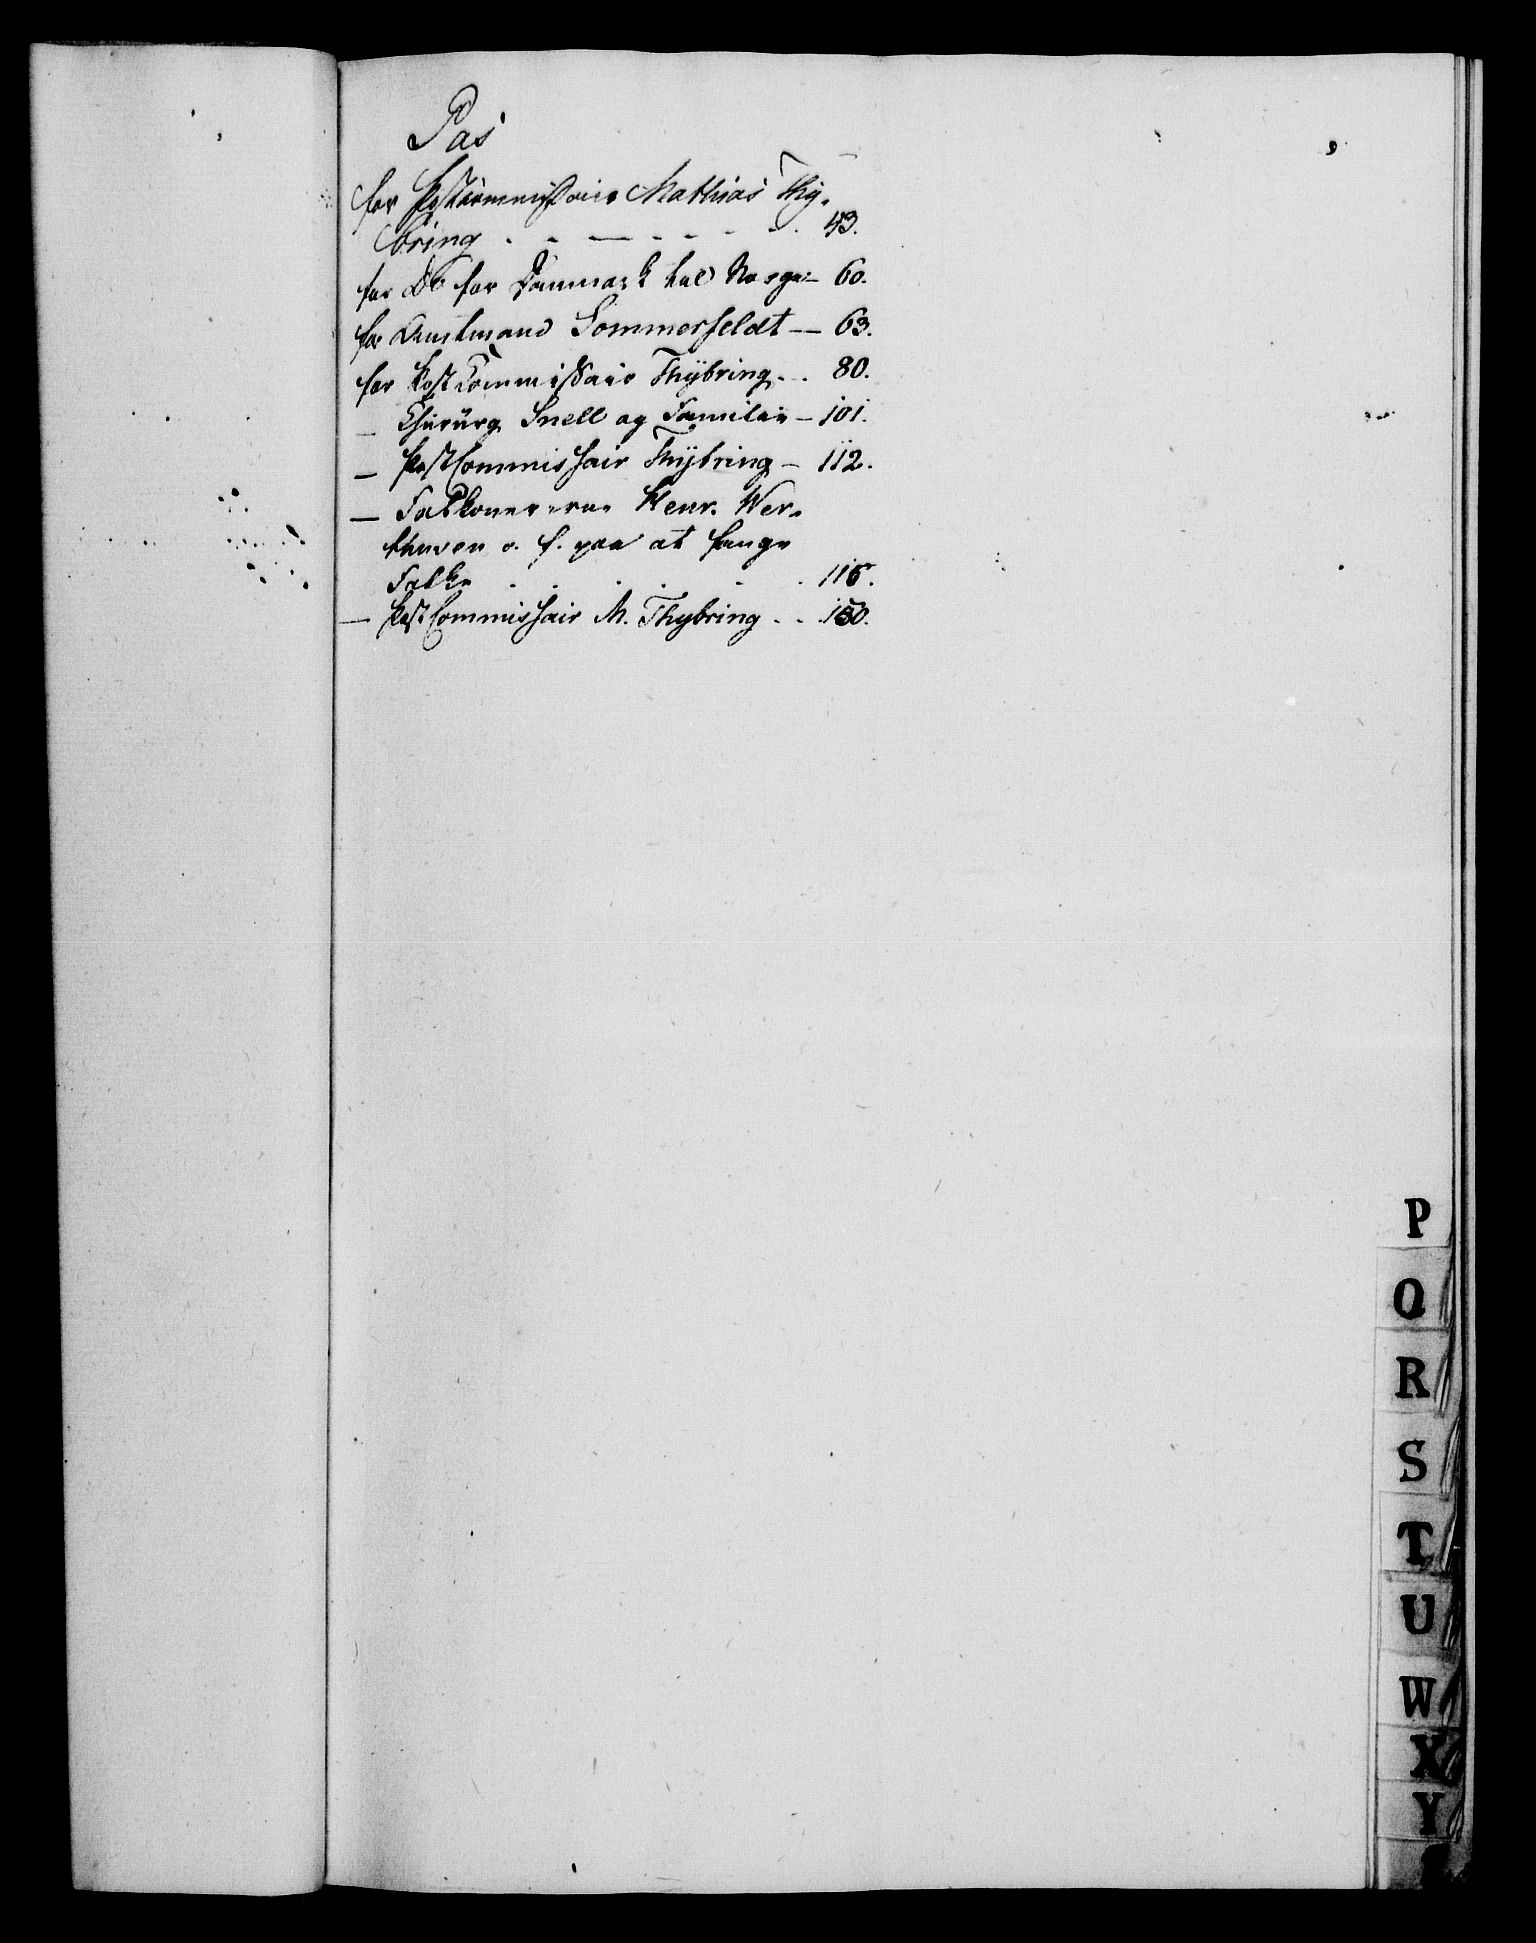 Pas
for Postcommissaire Mathias Thy-
bring . . — . . . . 43.
for Do fra Danmark til Norge — 60.
for Amtmand Sommerfeldt — 63.
for PostCommissair Thybring . . 80.
— Chirurg Snell og Familie — 101.
— PostCommissair Thybring — 112.
— Falkonererne Henr. Wer-
thusen o. f. paa at fange
Falke . . . . 116.
— PostCommissair M. Thybring . . 130.
P
Q
R
S
T
U
W
X
Y